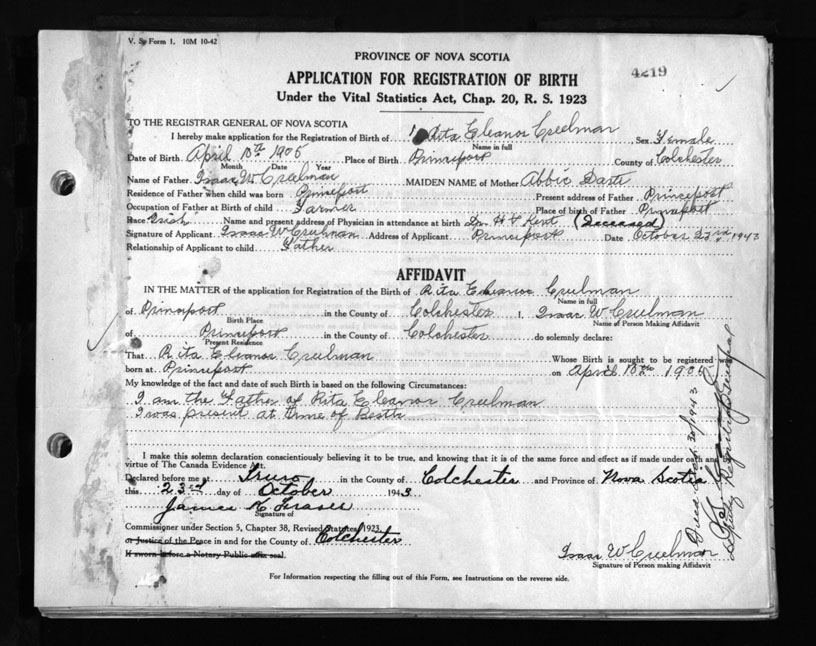 V. S. Form 1, 10M 10-42
PROVINCE OF NOVA SCOTIA
4219
APPLICATION FOR REGISTRATION OF BIRTH
Under the Vital Statistics Act, Chap. 20, R. S. 1923
TO THE REGISTRAR GENERAL OF NOVA SCOTIA
I hereby make application for the Registration of Birth of Rita Eleanor Creelman Sex Female
Name in full
Date of Birth April 10th 1905 Place of Birth Princeport County of Colchester
Month Date Year
Name of Father Isaac W Creelman MAIDEN NAME of Mother Abbie Dart
Residence of Father when child was born Princeport Present address of Father Princeport
Occupation of Father at Birth of child Farmer Place of birth of Father Princeport
Race Irish Name and present address of Physician in attendance at birth Dr. Kent (Deceased)
Signature of Applicant Isaac W Creelman Address of Applicant Princeport Date October 23rd 1943
Relationship of Applicant to child Father
AFFIDAVIT
IN THE MATTER of the application for Registration of the Birth of Rita Eleanor Creelman
Name in full
of Princeport in the County of Colchester I, Isaac W Creelman
Birth Place Name of Person Making Affidavit
of Princeport in the County of Colchester do solemnly declare:
Present Residence
That Rita Eleanor Creelman Whose Birth is sought to be registered was
born at Princeport on April 10th 1905
My knowledge of the fact and date of such Birth is based on the following Circumstances:
I am the Father of Rita Eleanor Creelman
I was present at time of Birth
I make this solemn declaration conscientiously believing it to be true, and knowing that it is of the same force and effect as if made under oath and
virtue of The Canada Evidence Act.
Declared before me at Truro in the County of Colchester and Province of Nova Scotia
this 23rd day of October 1943
James K Fraser
Signature of
Commissioner under Section 5, Chapter 38, Revised Statutes 1923
or Justice of the Peace in and for the County of Colchester
If sworn before a Notary Public affix seal.
Isaac W Creelman
Signature of Person making Affidavit
For Information respecting the filling out of this Form, see Instructions on the reverse side.
1943
Deputy Registrar